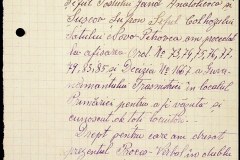 Șeful Postului Jand. Anatolievca și
Șupcov Supon Șeful Colhozului
Satului Novo-Petrovca am procedat
la afișarea Ord. No 73, 74, 75, 76, 77,
79, 83, 85 și Decizia No 1667 a Guver-
nământului Trasnistriei în localul
Primăriei pentru a fi văzute și
cunoscut de toți locuitorii.
Drept pentru care am dresat
prezentul Proces-Verbal în dublu